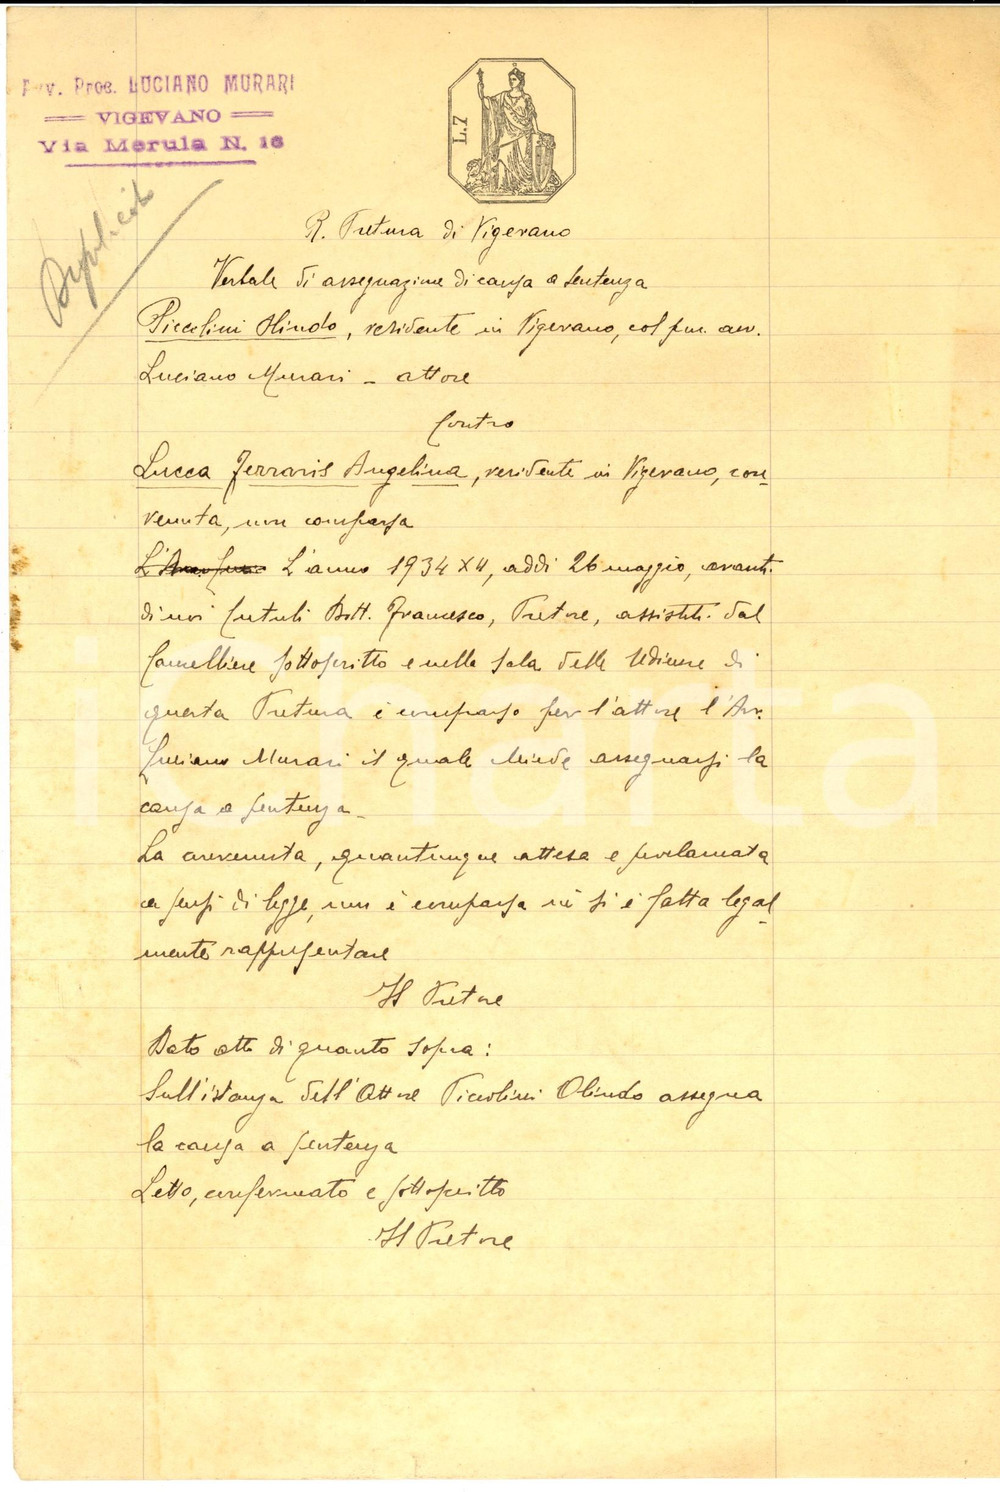 Avv. Proc. LUCIANO MURARI
VIGEVANO
Via Merula N. 16
Duplicato
L.7
R. Pretura di Vigevano
Verbale di assegnazione di causa a sentenza
Piccolini Olindo, residente in Vigevano, col pro. avv.
Luciano Murari - attore
Contro
Lucca Ferraris Angelina, residente in Vigevano, con-
venuta, non comparsa
L'anno 1934 XII, addì 26 maggio, avanti
di noi Cutuli Dott. Francesco, Pretore, assistiti dal
Cancelliere sottoscritto e nella sala delle Udienze di
questa Pretura è comparso per l'attore l'Avv.
Luciano Murari il quale chiede assegnarsi la
causa a sentenza -
La convenuta, quantunque attesa e proclamata
a sensi di legge, non è comparsa nè si è fatta legal-
mente rappresentare
Il Pretore
Dato atto di quanto sopra:
Sull'istanza dell'Attore Piccolini Olindo assegna
la causa a sentenza
Letto, confermato e sottoscritto
Il Pretore